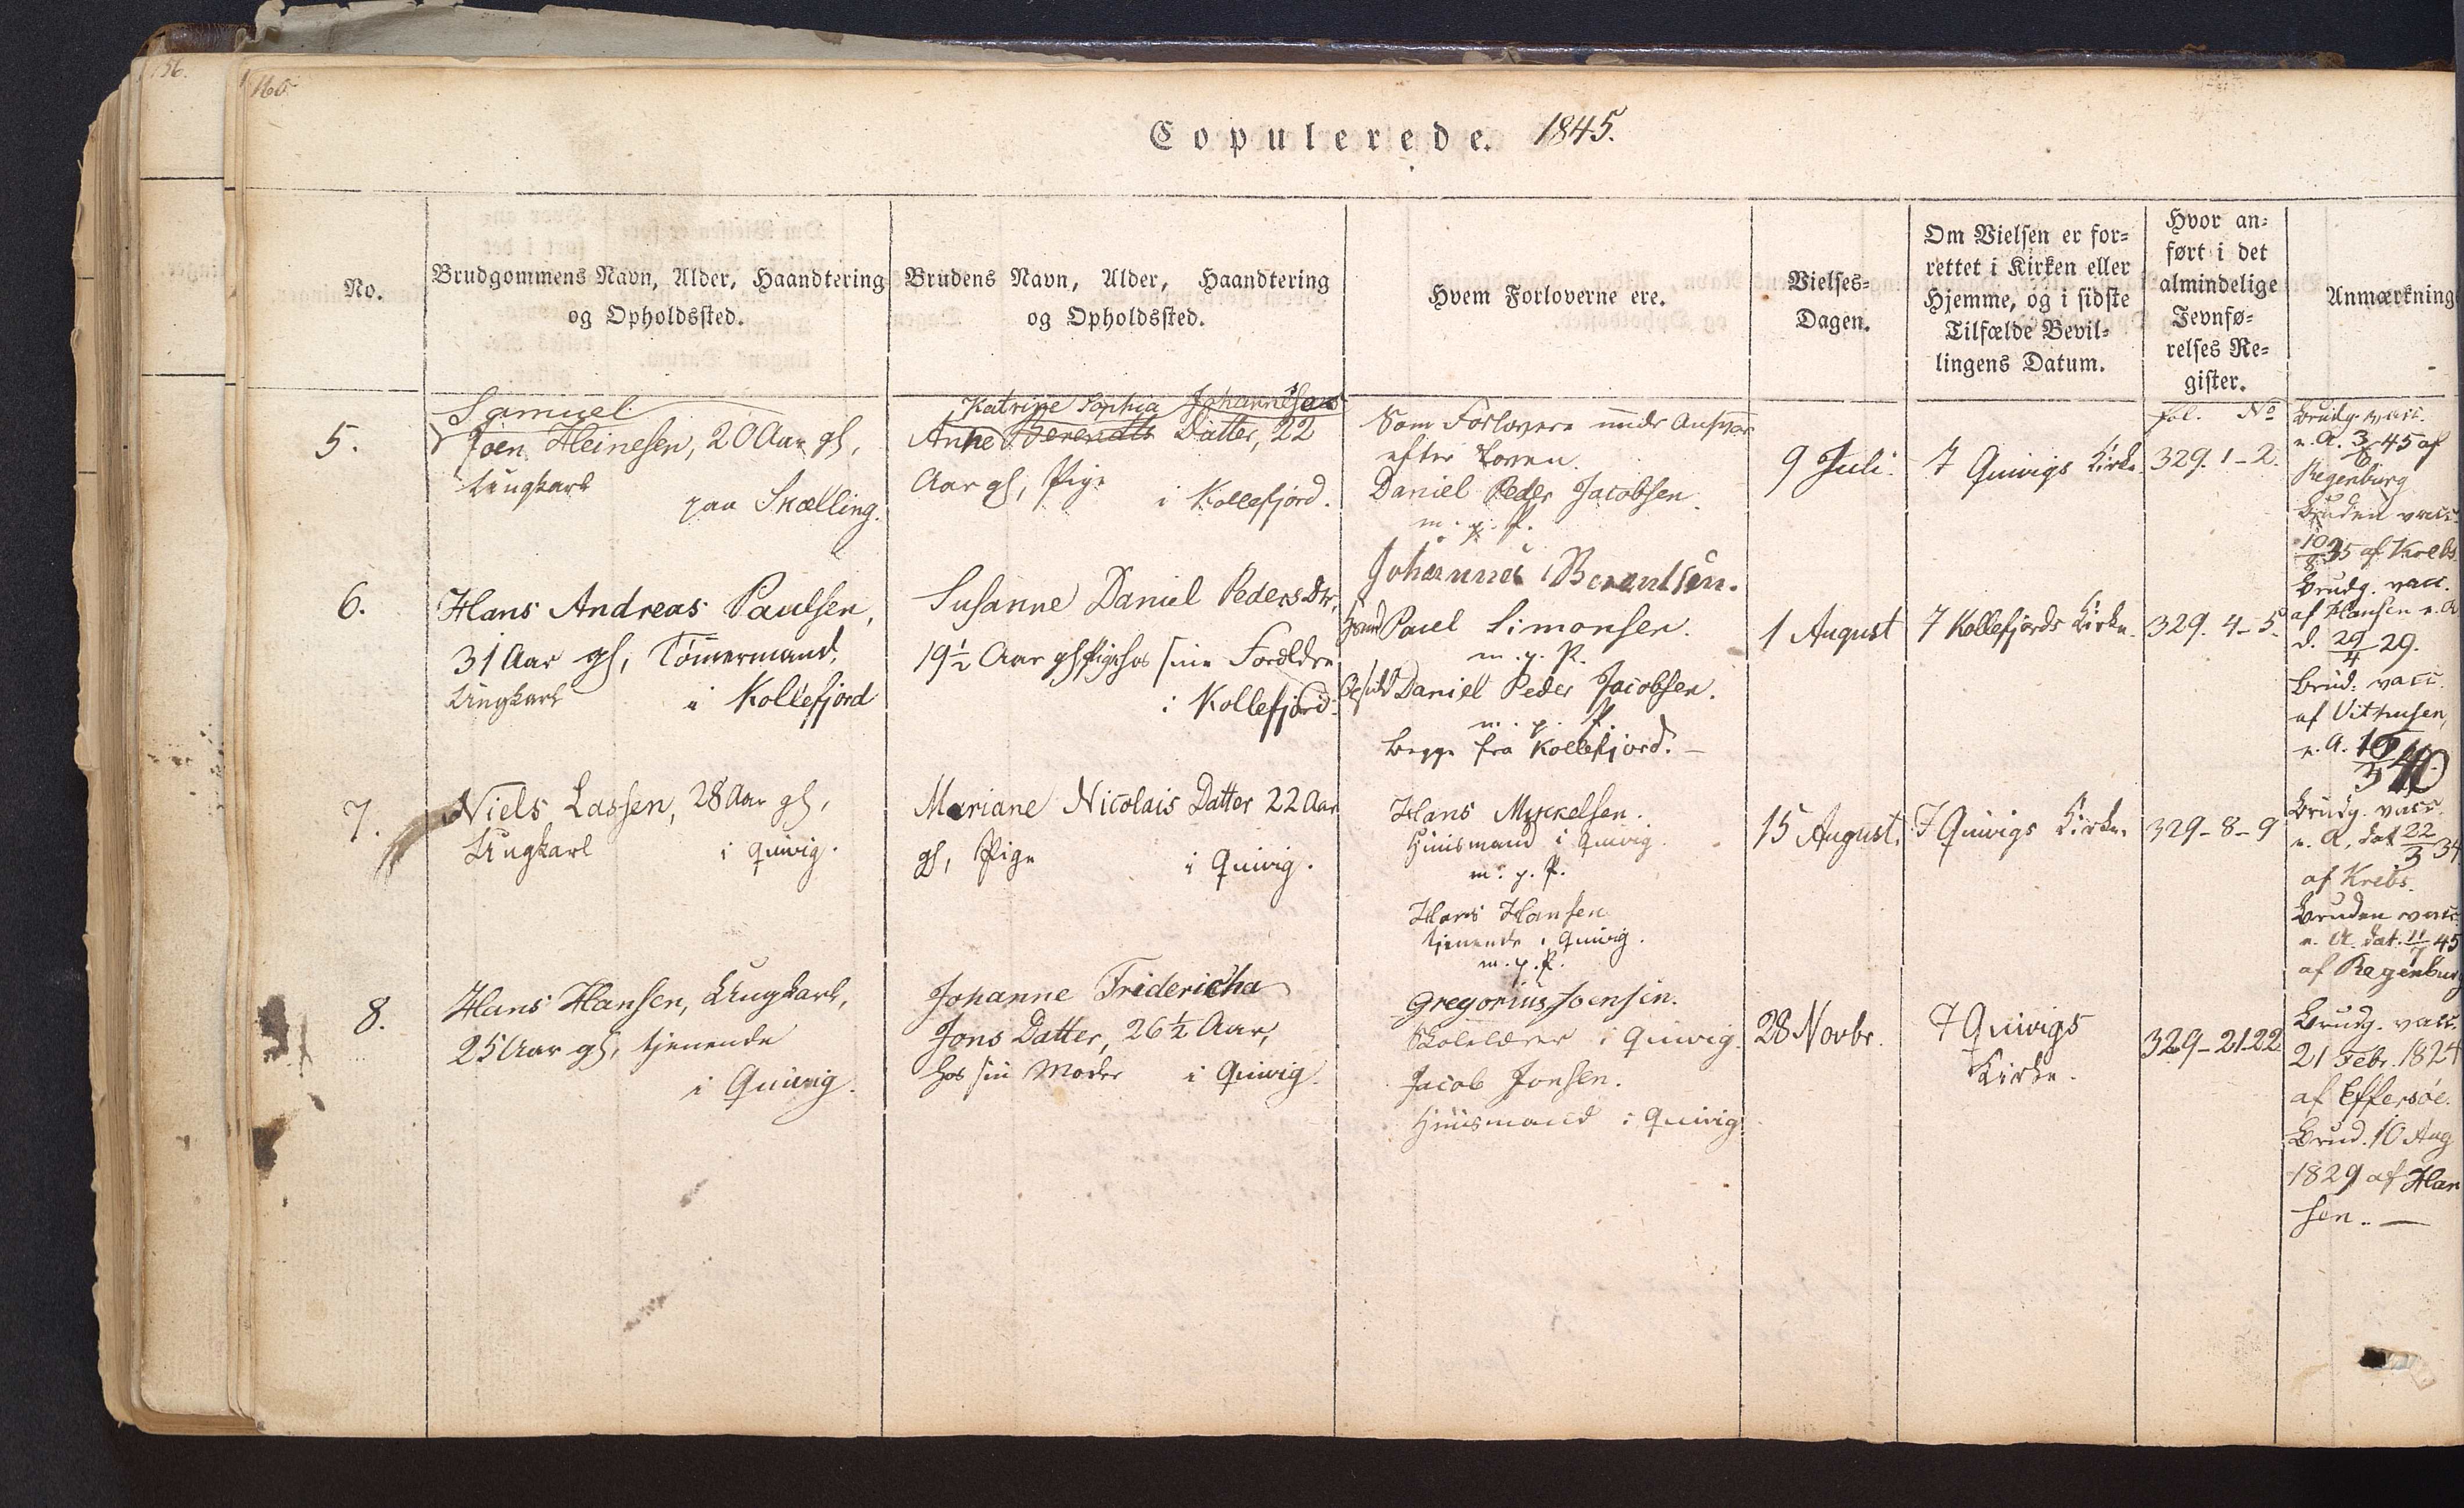 56.
160
Copulerede. 1845.
No.
Brudgommens Navn, Alder, Haandtering
og Opholdssted.
Brudens Navn, Alder, Haandtering
og Opholdssted.
Hvem Forloverne ere.
Vielses-
Dagen.
Om Vielsen er for-
rettet i Kirken eller
Hjemme, og i sidste
Tilfælde Bevil-
lingens Datum.
Hvor an-
ført i det
almindelige
Jevnfø-
relses Re-
gister.
Anmærkning
5.
Samuel
Joen Heinesen, 20 Aar gl,
Ungkarl
paa Skælling.
Katrine Sophia Johannesens
Anne Berendts Datter, 22
Aar gl, Pige
i Kollefjord.
Som Forlovere under Ansvar
efter Loven.
Daniel Peder Jacobsen.
m. p. P.
Johannes Berentsen.
9 Juli.
I Quivigs Kirke
fol. No
329. 1-2.
Brudg. vacc.
e. A. 3/6 45 af
Regenburg
Bruden vacc.
10/8 35 af Krebs
6.
Hans Andreas Paulsen,
31 Aar gl, Tömermand,
Ungkarl
i Kollefjord
Susanne Daniel Peders Dtr,
19½ Aar gl Pige hos sine Forældre
i Kollefjord.
Paul Simonsen.
m. p. P.
Daniel Peder Jacobsen.
m. p. P.
begge fra Kollefjord. —
1 August
I Kollefjords Kirke.
329. 4-5.
Brudg. vacc.
af Hansen e. A
d. 29/4 29.
Brud. vacc.
af Vithusen,
e. A.
40
7.
Niels Lassen, 28 Aar gl,
Ungkarl
i Quivig.
Mariane Nicolais Datter 22 Aar
gl, Pige
i Quivig.
Hans Myckelsen.
Huusmand i Quivig.
m. p. P.
Hans Hansen
tjenende i Quivig.
m. p. P.
15 August.
I Quivigs Kirke.
329-8-9
Brudg. vacc.
e. A. dat 22/3 34
af Krebs.
Bruden vacc
e. A. dat. 11/7 45
af Regenburg
8.
Hans Hansen, Ungkarl,
25 Aar gl, tjenende
i Quivig.
Johanne Fridericha
Jons Datter, 26½ Aar,
hos sin Moder i Quivig.
Gregorius Joensen.
Skolelærer i Quivig.
Jacob Jonsen.
Huusmand i Quivig.
28 Novbr.
I Quivigs
Kirke.
329-21.22
Brudg. vacc.
21 Febr. 1824
af Effersøe.
Brud. 10 Aug
1829 af Han
sen. —